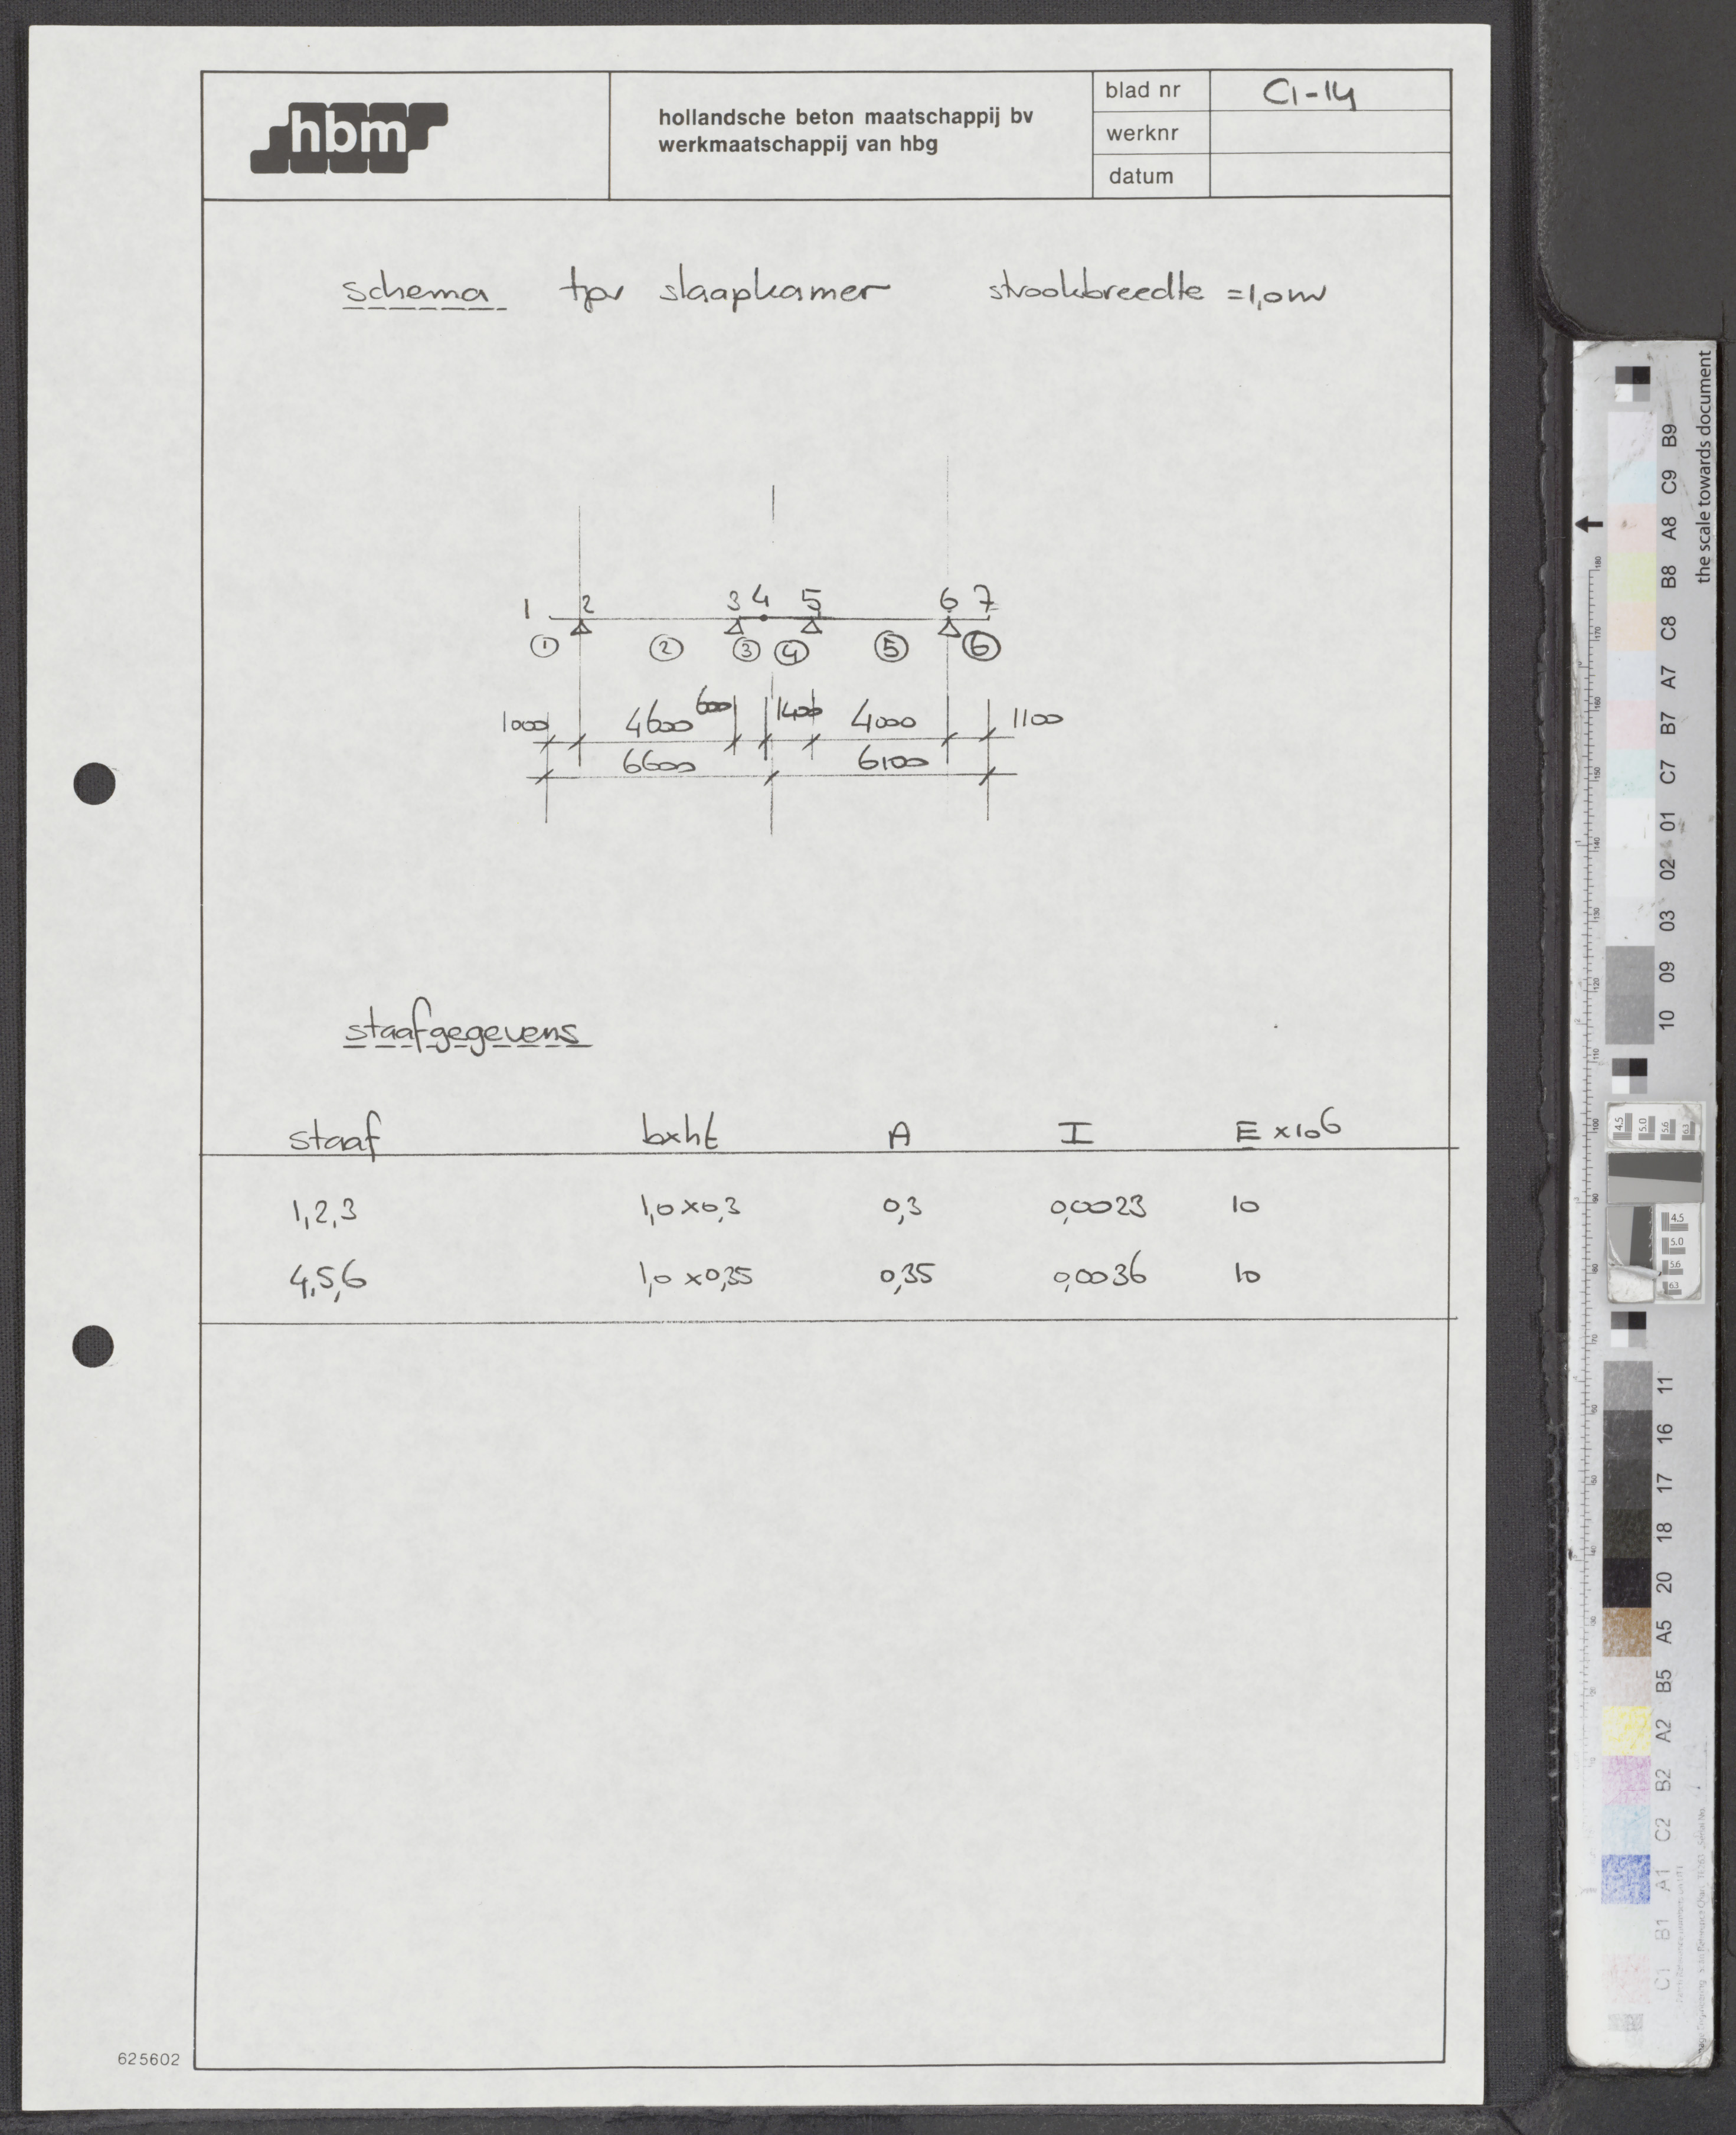 hbm
hollandsche beton maatschappij bv
werkmaatschappij van hbg
blad nr C1-14
werknr
datum
schema tpv slaapkamer strookbreedte = 1,0 m
1 2 3 4 5 6 7
1 2 3 4 5 6
1000 4600 600 1400 4000 1100
6600 6100
staafgegevens
staaf bxht A I E x10⁶
1,2,3 1,0 x 0,3 0,3 0,0023 10
4,5,6 1,0 x 0,35 0,35 0,0036 10
625602
the scale towards document
B9
C9
A8
B8
C8
A7
B7
C7
01
02
03
09
10
11
16
17
18
20
A5
B5
A2
B2
C2
A1
B1
C1
4.5 5.0 5.6 6.3
4.5
5.0
5.6
6.3